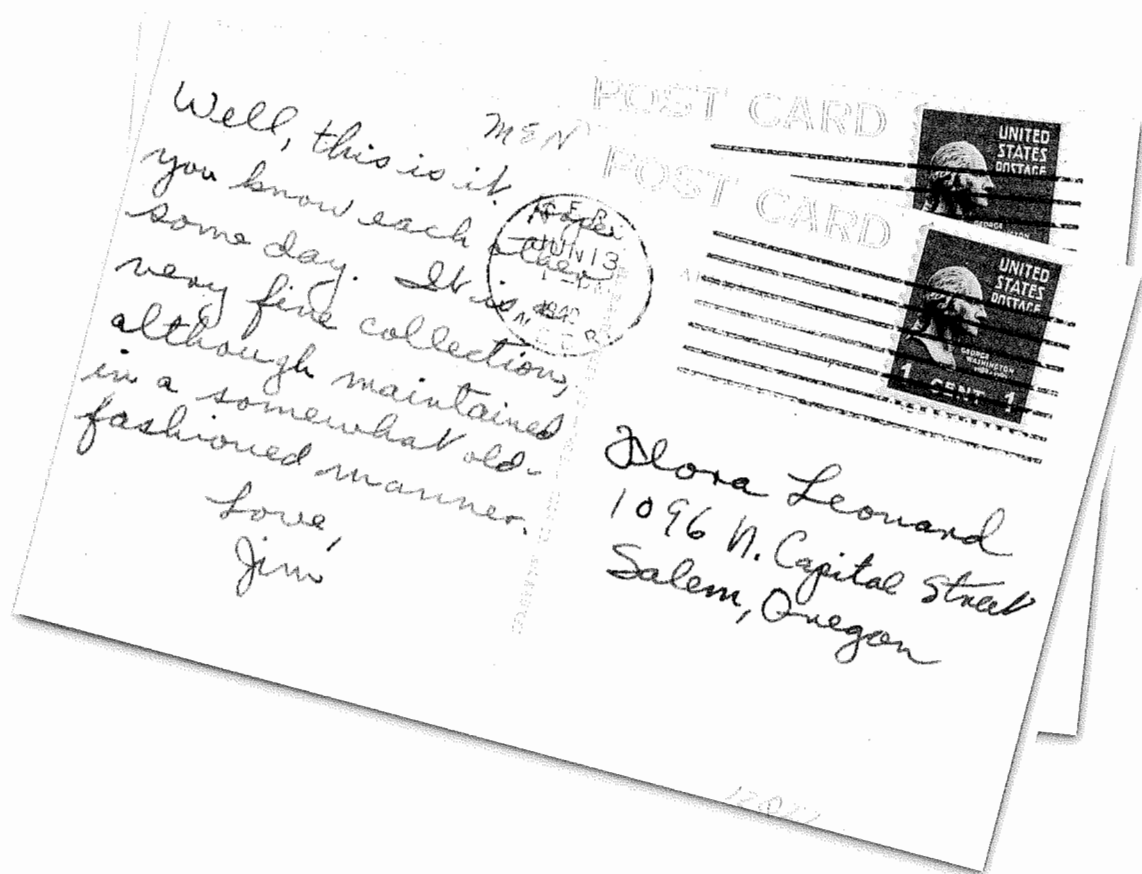 MEN
Well, this is it. Hope
you know each other
some day. It is a
very fine collection,
although maintained
in a somewhat old-
fashioned manner.
Love,
Jim
POST CARD
POST CARD
JUN 13
UNITED
STATES
POSTAGE
UNITED
STATES
POSTAGE
GEORGE
WASHINGTON
1 CENT 1
Flora Leonard
1096 N. Capital Street
Salem, Oregon